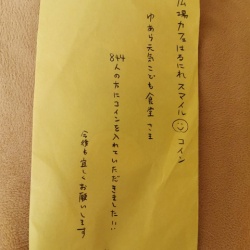 広場カフェはるにれスマイルコイン
ゆあら元気こども食堂さま
844人の方にコインを入れていただきました!!!
今後も宜しくお願いします